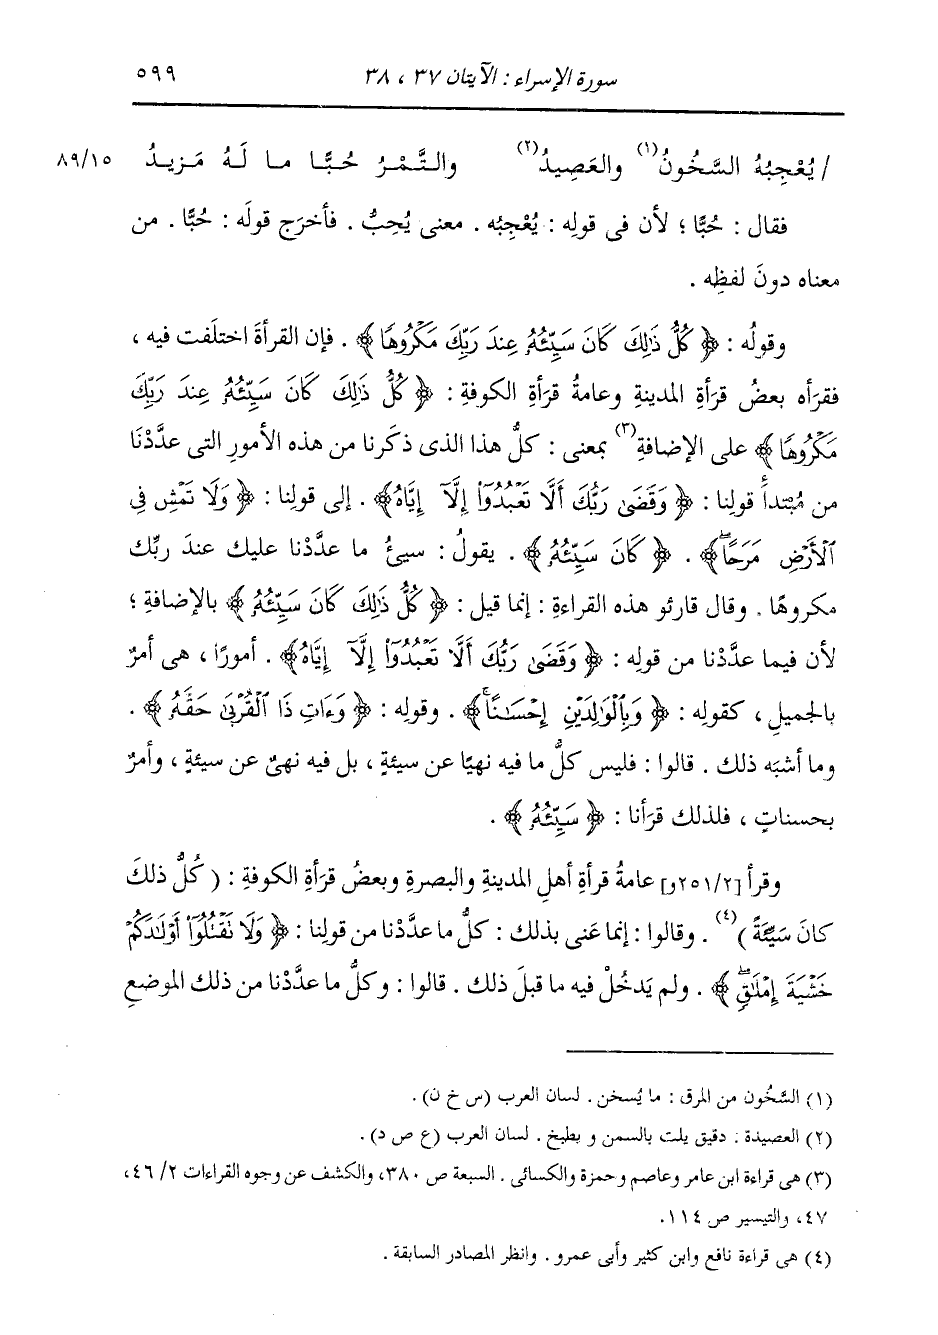 سورة الإسراء : الآيتان ٣٧ ، ٣٨ ٥٩٩
/ يُعْجِبُهُ السَّخُونُ(١) والعَصِيدُ(٢) والتَّمْرُ حُبًّا ما لَهُ مَزِيدُ ٨٩/١٥
فقال : حُبًّا ؛ لأن فى قولِه : يُعْجِبُه . معنى يُحِبُّ . فأخرَج قولَه : حُبًّا . من
معناه دونَ لفظِه .
وقولُه : ﴿ كُلُّ ذَٰلِكَ كَانَ سَيِّئُهُۥ عِندَ رَبِّكَ مَكْرُوهًا ﴾ . فإن القرأةَ اختلَفت فيه ،
فقرَأه بعضُ قرَأةِ المدينةِ وعامةُ قرَأةِ الكوفةِ : ﴿ كُلُّ ذَٰلِكَ كَانَ سَيِّئُهُۥ عِندَ رَبِّكَ
مَكْرُوهًا ﴾ على الإضافةِ(٣) بمعنى : كلُّ هذا الذى ذكَرنا من هذه الأمورِ التى عدَّدْنَا
من مُبْتدأ قولِنا : ﴿ وَقَضَىٰ رَبُّكَ أَلَّا تَعْبُدُوٓا۟ إِلَّآ إِيَّاهُ ﴾ . إلى قولِنا : ﴿ وَلَا تَمْشِ فِى
ٱلْأَرْضِ مَرَحًا ۖ ﴾ . ﴿ كَانَ سَيِّئُهُۥ ﴾ . يقولُ : سيئُ ما عدَّدْنا عليك عندَ ربِّك
مكروهًا . وقال قارئو هذه القراءةِ : إنما قيل : ﴿ كُلُّ ذَٰلِكَ كَانَ سَيِّئُهُۥ ﴾ بالإضافةِ ؛
لأن فيما عدَّدْنا من قولِه : ﴿ وَقَضَىٰ رَبُّكَ أَلَّا تَعْبُدُوٓا۟ إِلَّآ إِيَّاهُ ﴾ . أمورًا ، هى أمرٌ
بالجميلِ ، كقولِه : ﴿ وَبِٱلْوَٰلِدَيْنِ إِحْسَٰنًا ۚ ﴾ . وقولِه : ﴿ وَءَاتِ ذَا ٱلْقُرْبَىٰ حَقَّهُۥ ﴾ .
وما أشبَه ذلك . قالوا : فليس كلُّ ما فيه نهيًا عن سيئةٍ ، بل فيه نهىٌ عن سيئةٍ ، وأمرٌ
بحسناتٍ ، فلذلك قرَأنا : ﴿ سَيِّئُهُۥ ﴾ .
وقرأ [٢٥١/٢و] عامةُ قرأةِ أهلِ المدينةِ والبصرةِ وبعضُ قرَأةِ الكوفةِ : ( كُلُّ ذلكَ
كانَ سَيِّئَةً )(٤) . وقالوا : إنما عَنى بذلك : كلُّ ما عدَّدْنا من قولِنا : ﴿ وَلَا تَقْتُلُوٓا۟ أَوْلَٰدَكُمْ
خَشْيَةَ إِمْلَٰقٍ ۖ ﴾ . ولم يَدخُلْ فيه ما قبلَ ذلك . قالوا : وكلُّ ما عدَّدْنا من ذلك الموضعِ
(١) السَّخُون من المرق : ما يُسخن . لسان العرب (س خ ن) .
(٢) العصيدة : دقيق يلت بالسمن و يطبخ . لسان العرب (ع ص د) .
(٣) هى قراءة ابن عامر وعاصم وحمزة والكسائى . السبعة ص ٣٨٠، والكشف عن وجوه القراءات ٤٦/٢ ،
٤٧، والتيسير ص ١١٤.
(٤) هى قراءة نافع وابن كثير وأبى عمرو . وانظر المصادر السابقة .